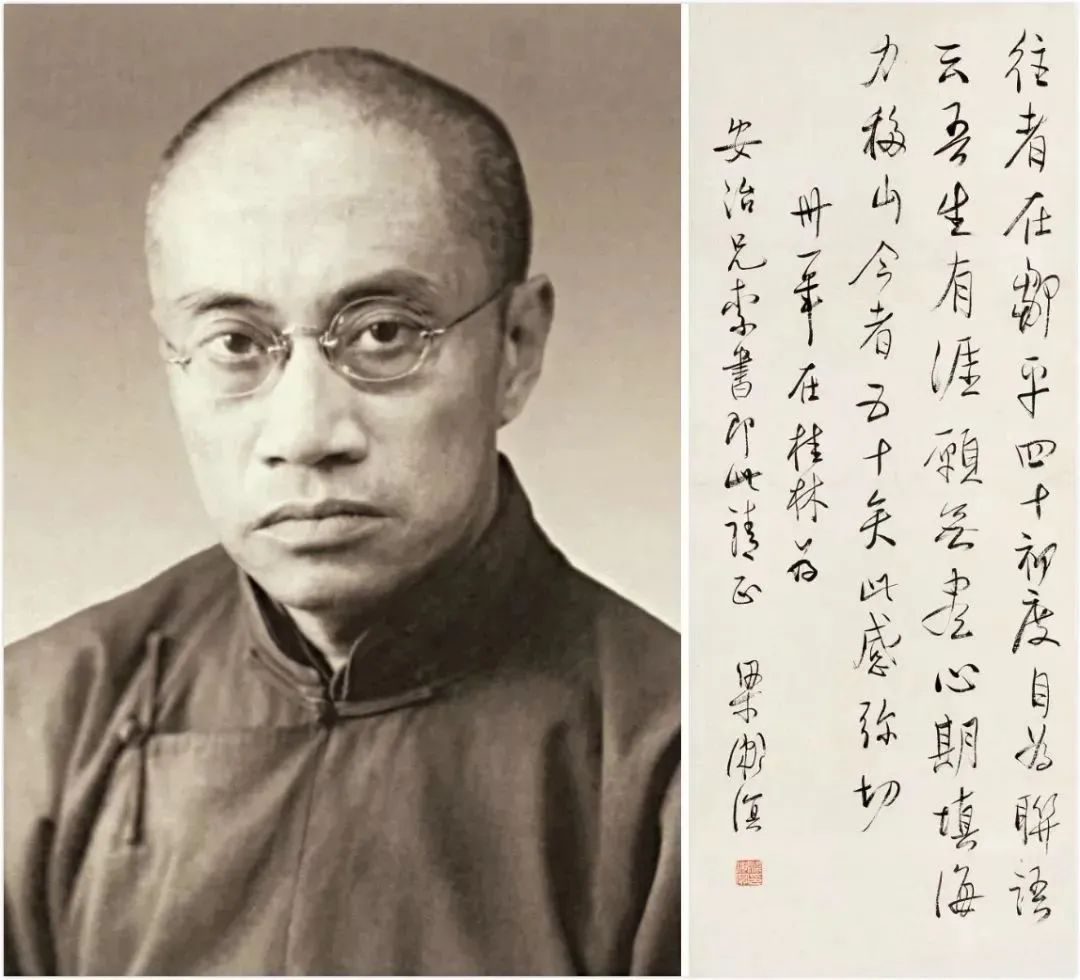 往者在鄒平四十初度自为聯語
云吾生有涯願無盡心期填海
力移山今者五十矣此感弥切
卅一年在桂林为
安治兄索書即此請正
梁漱溟